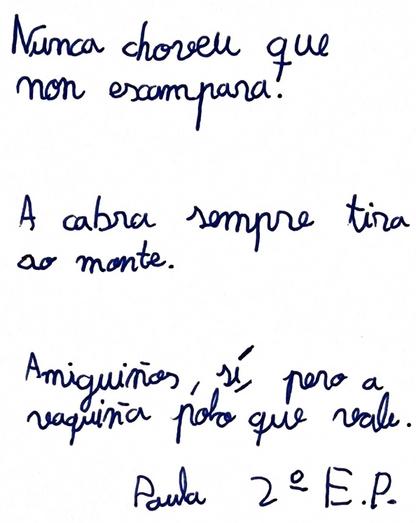 Nunca choveu que
non escampara!
A cabra sempre tira
ao monte.
Amiguiños, sí, pero a
vaquiña polo que vale.
Paula 2º E.P.